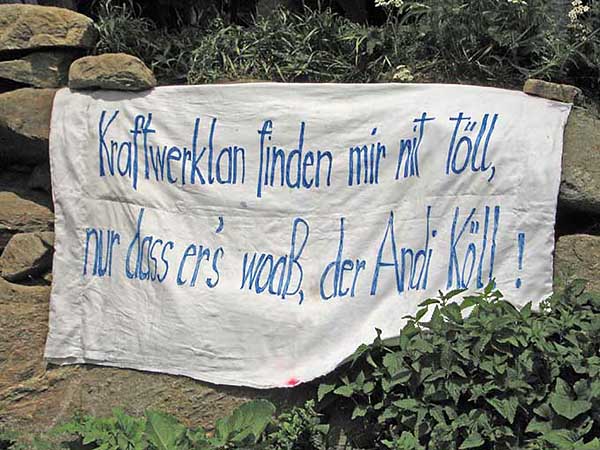 Kraftwerklan finden mir nit töll,
nur dass er's woaß, der Andi Köll!